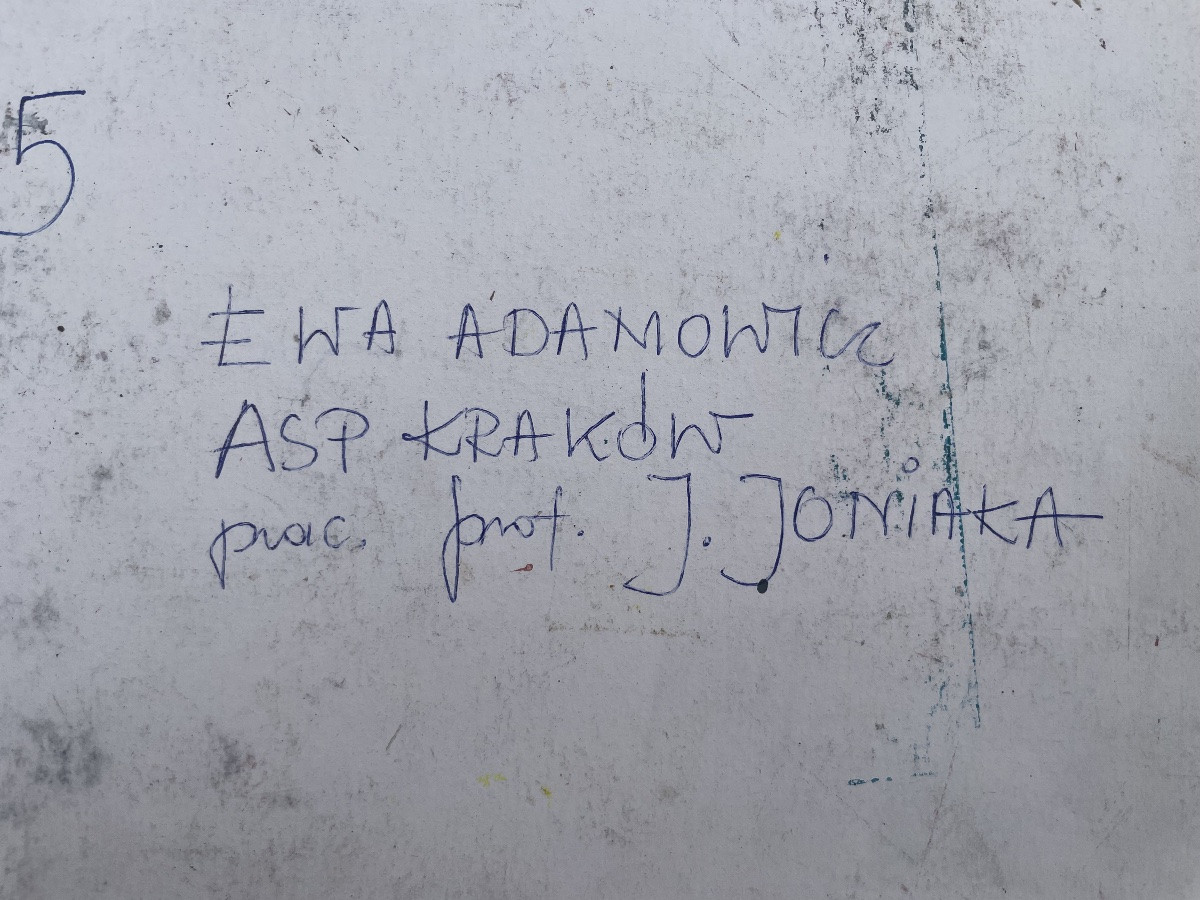 5
EWA ADAMOWICZ
ASP KRAKÓW
prac. prof. J. JONIAKA